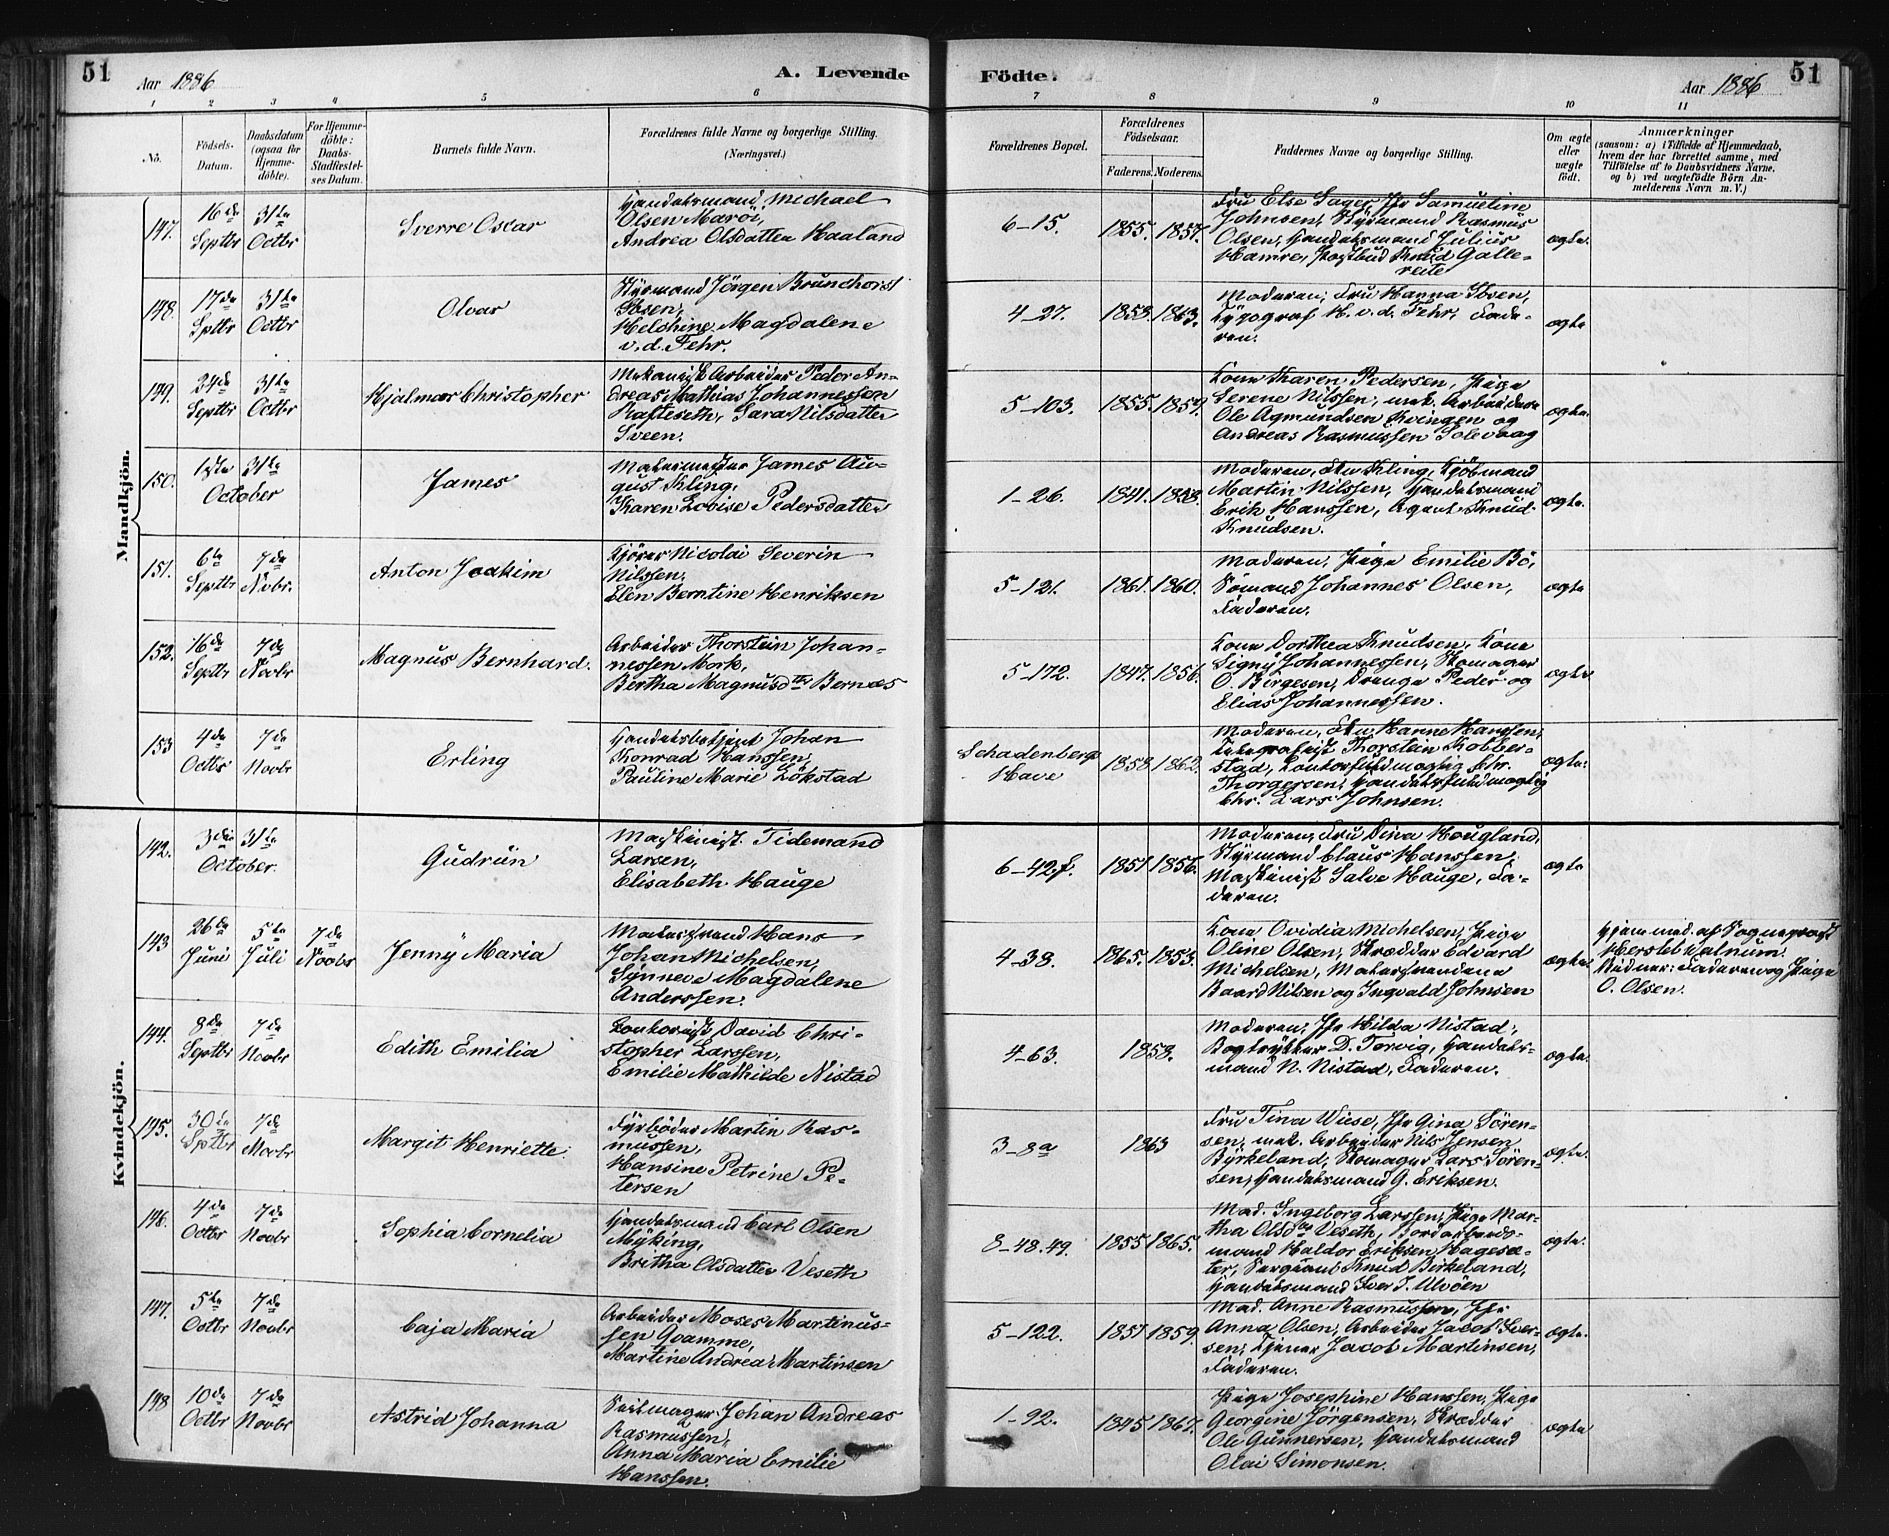 51
Aar 1886
A. Levende
Födte.
Aar 1886
51
1 2 3 4 5 6 7 8 9 10 11
No.
Födsels-
Datum.
Daabsdatum
(ogsaa for
Hjemme-
döbte).
For Hjemme-
döbte:
Daabs-
Stadfestel-
ses Datum.
Barnets fulde Navn.
Forældrenes fulde Navne og borgerlige Stilling.
(Næringsvei.)
Forældrenes Bopæl.
Forældrenes
Födselsaar.
Faderens. Moderens.
Faddernes Navne og borgerlige Stilling.
Om ægte
eller
uægte
födt.
Anmærkninger
(saasom: a) i Tilfælde af Hjemmedaab,
hvem der har forrettet samme, med
Tilföielse af to Daabsvidners Navne.
og b) ved uægtefödte Börn An-
melderens Navn m. V.)
Mandkjön.
147.
16de
Septbr
31te
Octbr
Sverre Oscar
Handelsmand Michael
Olsen Maröi,
Andrea Olsdatter Haaland
6-15.
1855. 1857.
Fru Else Sager, Jfr Samueline
Johnsen, Styrmand Rasmus
Olsen, Handelsmand Julius
Hamre, Postbud Knud Galle-
reite
ægte.
148.
17de
Sptbr
31te
Octbr
Olvar
Styrmand Jörgen Brunchorst
Ibsen,
Helchine Magdalene
v. d. Fehr.
4-27.
1853. 1863.
Moderen, Fru Hanna Ibsen,
Typograf H. v. d. Fehr, Fade-
ren.
ægte
149.
24de
Septbr
31te
Octbr
Hjalmar Christopher
Mekanisk Arbeider Peder An-
dreas Mathias Johannessen
Rafteseth, Sara Nilsdatter
Sveen.
5-103.
1855. 1859.
Kone Karen Pedersen, Pige
Serene Nilssen, mek. Arbeidere
Ole Agmundsen Kvingen og
Andreas Rasmussen Solevaag
ægte.
150.
1ste 31te
October
James
Malermester James Au-
gust Kling,
Karen Lovise Pedersdatter
1-26.
1841. 1858.
Moderen, Fru Kling, Kjöbmand
Martin Nilssen, Handelsmand
Erik Hanssen, Agent Knud
Knudsen.
ægte.
151.
6te
Septbr
7de
Novbr.
Anton Joakim
Kjörer Nicolai Severin
Nilssen,
Elen Berntine Henriksen
5-121.
1861. 1860.
Moderen, Pige Emilie Bö,
Sömand Johannes Olsen,
Faderen.
ægte
152.
16de
Septbr
7de
Novbr
Magnus Bernhard.
Arbeider Thorstein Johan-
nessen Mork,
Bertha Magnusdtr Bernæs
5-172.
1847. 1856.
Kone Dorthea Knudsen, Kone
Signy Johannessen, Skomager
O. Birgesen, Drenge Peder og
Elias Johannessen.
ægte
153
4de
Octbr
7de
Novbr
Erling
Handelsbetjent Johan
Konrad Hanssen,
Pauline Marie Lökstad
Schadenbergs
Have
1858 1862.
Moderen, Fru Hanne Hanssen,
Telegrafist Thorstein Kobber-
stad, Kontorfuldmægtig Chr.
Thorgersen, Handelsfuldmægtig
Chr. Lars Johnsen.
ægte.
Kvindekjön.
142.
3die 31te
October.
Gudrun
Maskinist Tidemand
Larsen,
Elisabeth Hauge
6-42.f.
1851 1856.
Moderen, Fru Dina Hougland,
Styrmand Claus Hanssen,
Maskinist Salve Hauge, Fa-
deren.
ægte
143
26de
Juni
5te
Juli
7de
Novbr
Jenny Maria
Malersvend Hans
Johan Michelsen,
Synneve Magdalene
Anderssen.
4-38.
1865. 1853.
Kone Ovidia Michelsen, Pige
Oline Olsen, Skrædder Edvard
Michelsen, Malersvendene
Baard Nilsen og Ingvald Johnsen
ægte.
Hjemmed. af Sogneprest
Herstel Walnum.
Vidner: Faderen og Pige
O. Olsen.
144.
8de
Septbr
7de
Novbr
Edith Emilia
Kontorist David Chri-
stopher Larssen,
Emilie Mathilde Nistad
4-63.
1858.
Moderen, Jfr Hilda Nistad,
Bogtrykker D. Torvig, Handels-
mand N. Nistad, Faderen.
ægte.
145.
30te
Sptbr
7de
Novbr
Margit Henriette.
Fyrböder Martin Ras-
mussen,
Hansine Petrine Pe-
tersen
3-8a
1863
Fru Tina Wiese, Jfr Gina Sören-
sen, mek. Arbeider Nils Jensen
Byrkeland, Skomager Lars Sören-
sen, Handelsmand G. Eriksen.
ægte.
146.
4de
Octbr
7de
Novbr
Sophia Cornelia
Handelsmand Carl Olsen
Myking,
Britha Olsdatter Veseth
8-48.49.
1855 1865.
Mad. Ingeborg Larssen, Pige Mar-
tha Olsdtr Veseth, Bordarbeids-
mand Haldor Eriksen Hagesæ-
ter, Sergeant Knud Birkeland,
Handelsmand Iver I. Alvöen
ægte.
147.
5te
Octbr
7de
Novbr
Caja Maria
Arbeider Moses Martinus-
sen Qvamme,
Martine Andrea Martinsen
5-122.
1851 1859.
Mad. Anne Rasmussen, Jfr
Anna Olsen, Arbeider Jacob Iver-
sen, Tjener Jacob Martinsen,
Faderen.
ægte.
148
10de
Octbr
7de
Novbr
Astrid Johanna
Seilmager Johan Andreas
Rasmussen,
Anna Maria Emilie
Hanssen.
1-92.
1845 1867.
Pige Josephine Hanssen, Pige
Georgine Jörgensen, Skrædder
Ole Gunnersen, Handelsmand
Olai Simonsen.
ægte